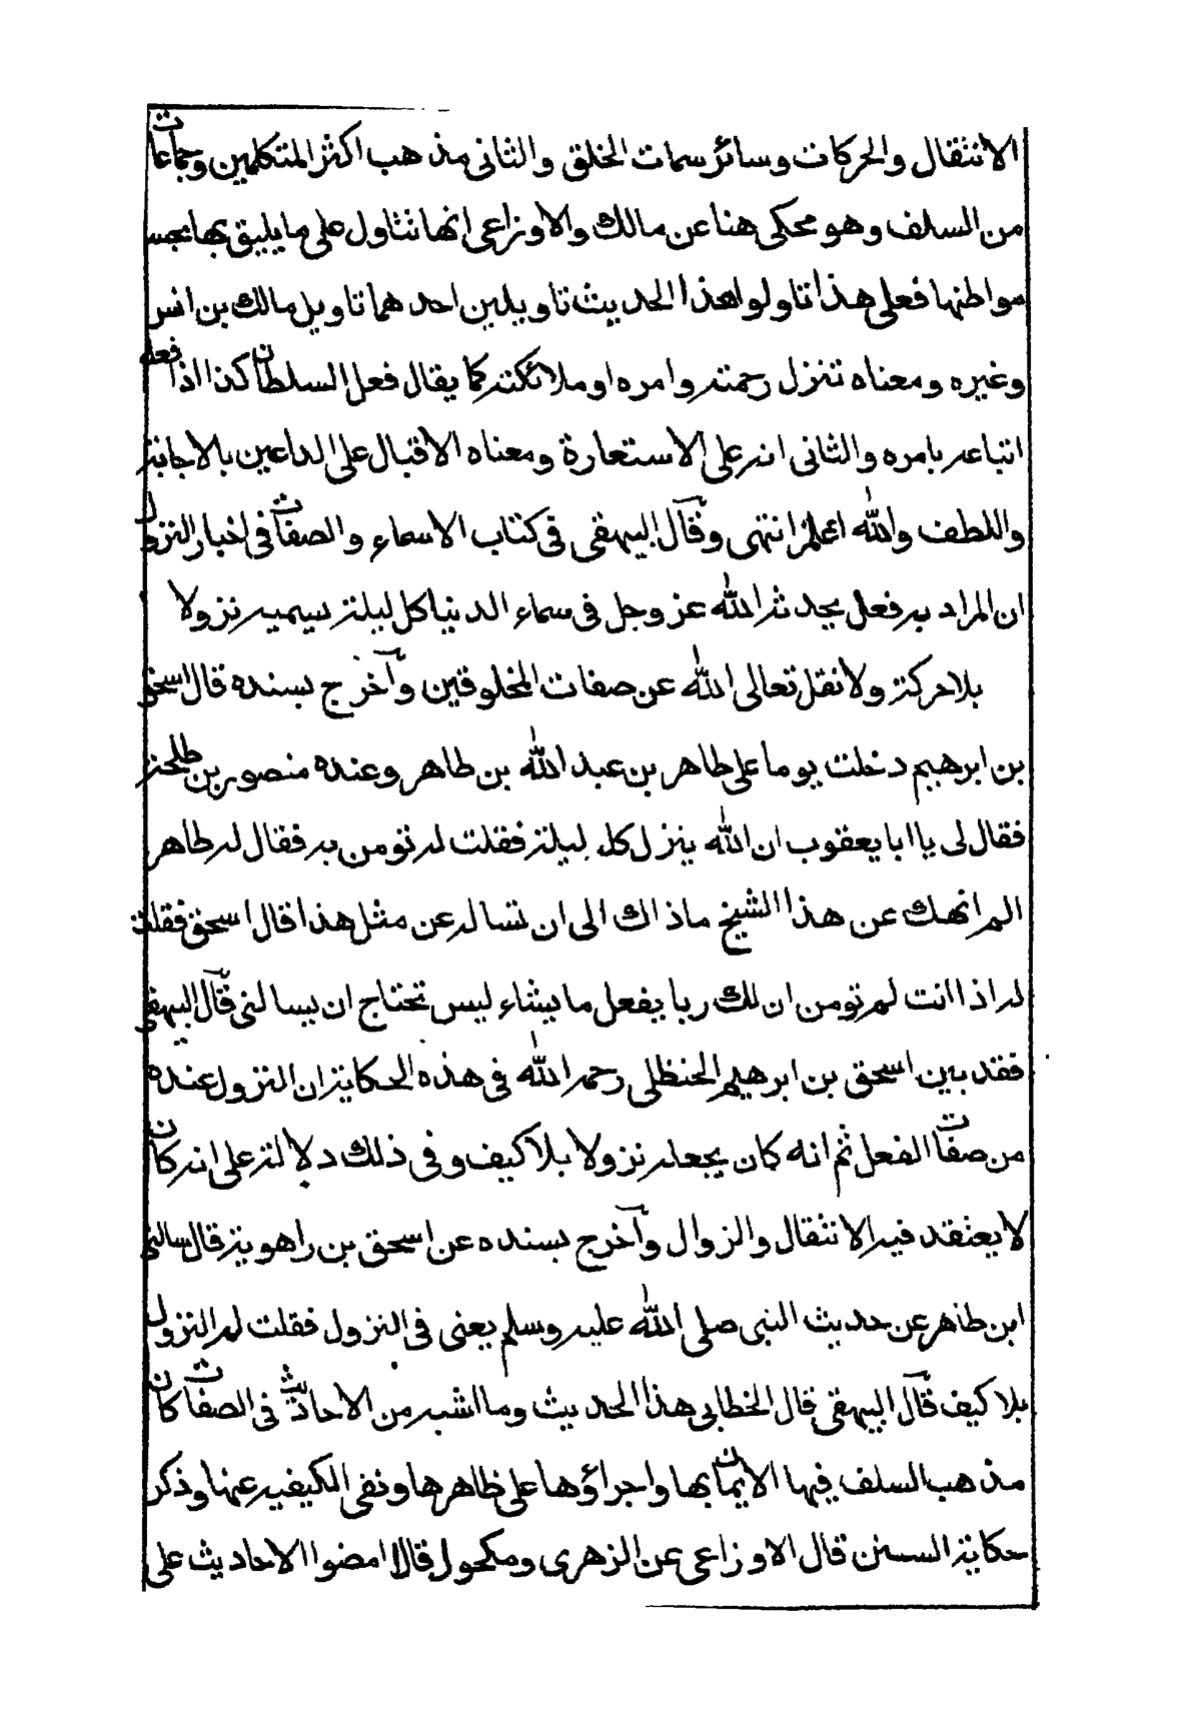 الانتقال والحركات وسائر سمات الخلق والثانى مذهب اكثر المتكلمين وجماعات
من السلف وهو محكى هنا عن مالك والاوزاعى انها تتاول على ما يليق بها بحسب
مواطنها فعلى هذا تاولوا هذا الحديث تاويلين احدهما تاويل مالك بن انس
وغيره ومعناه تتنزل رحمته وامره او ملائكته كما يقال فعل السلطان كذا اذا فعله
اتباعه بامره والثانى انه على الاستعارة ومعناه الاقبال على الداعين بالاجابة
واللطف والله اعلم انتهى وقال البيهقى فى كتاب الاسماء والصفات فى اخبار النزول
ان المراد به فعل يحدثه الله عز وجل فى سماء الدنيا كل ليلة يسميه نزولا
بلا حركة ولا نقل تعالى الله عن صفات المخلوقين وآخرج بسنده قال اسحق
بن ابرهيم دخلت يوما على طاهر بن عبد الله بن طاهر وعنده منصور بن طلحة
فقال لى يا ابا يعقوب ان الله ينزل كل ليلة فقلت له تومن به فقال له طاهر
الم انهك عن هذا الشيخ ماذاك الى ان تساله عن مثل هذا قال اسحق فقلت
له اذا انت لم تومن ان لك ربا يفعل ما يشاء ليس تحتاج ان يسالنى قال البيهقى
فقد بين اسحق بن ابرهيم الحنظلى رحمه الله فى هذه الحكاية ان النزول عنده
من صفات الفعل ثم انه كان يجعله نزولا بلا كيف وفى ذلك دلالة على انه كان
لا يعتقد فيه الانتقال والزوال وآخرج بسنده عن اسحق بن راهوية قال سالنى
ابن طاهر عن حديث النبى صلى الله عليه وسلم يعنى فى النزول فقلت له النزول
بلا كيف قال البيهقى قال الخطابى هذا الحديث وما اشبه من الاحاديث فى الصفات كان
مذهب السلف فيها الايمان بها واجراؤها على ظاهرها ونفى الكيفيه عنها وذكر
حكاية السنن قال الاوزاعى عن الزهرى ومكحول قالا امضوا الاحاديث على